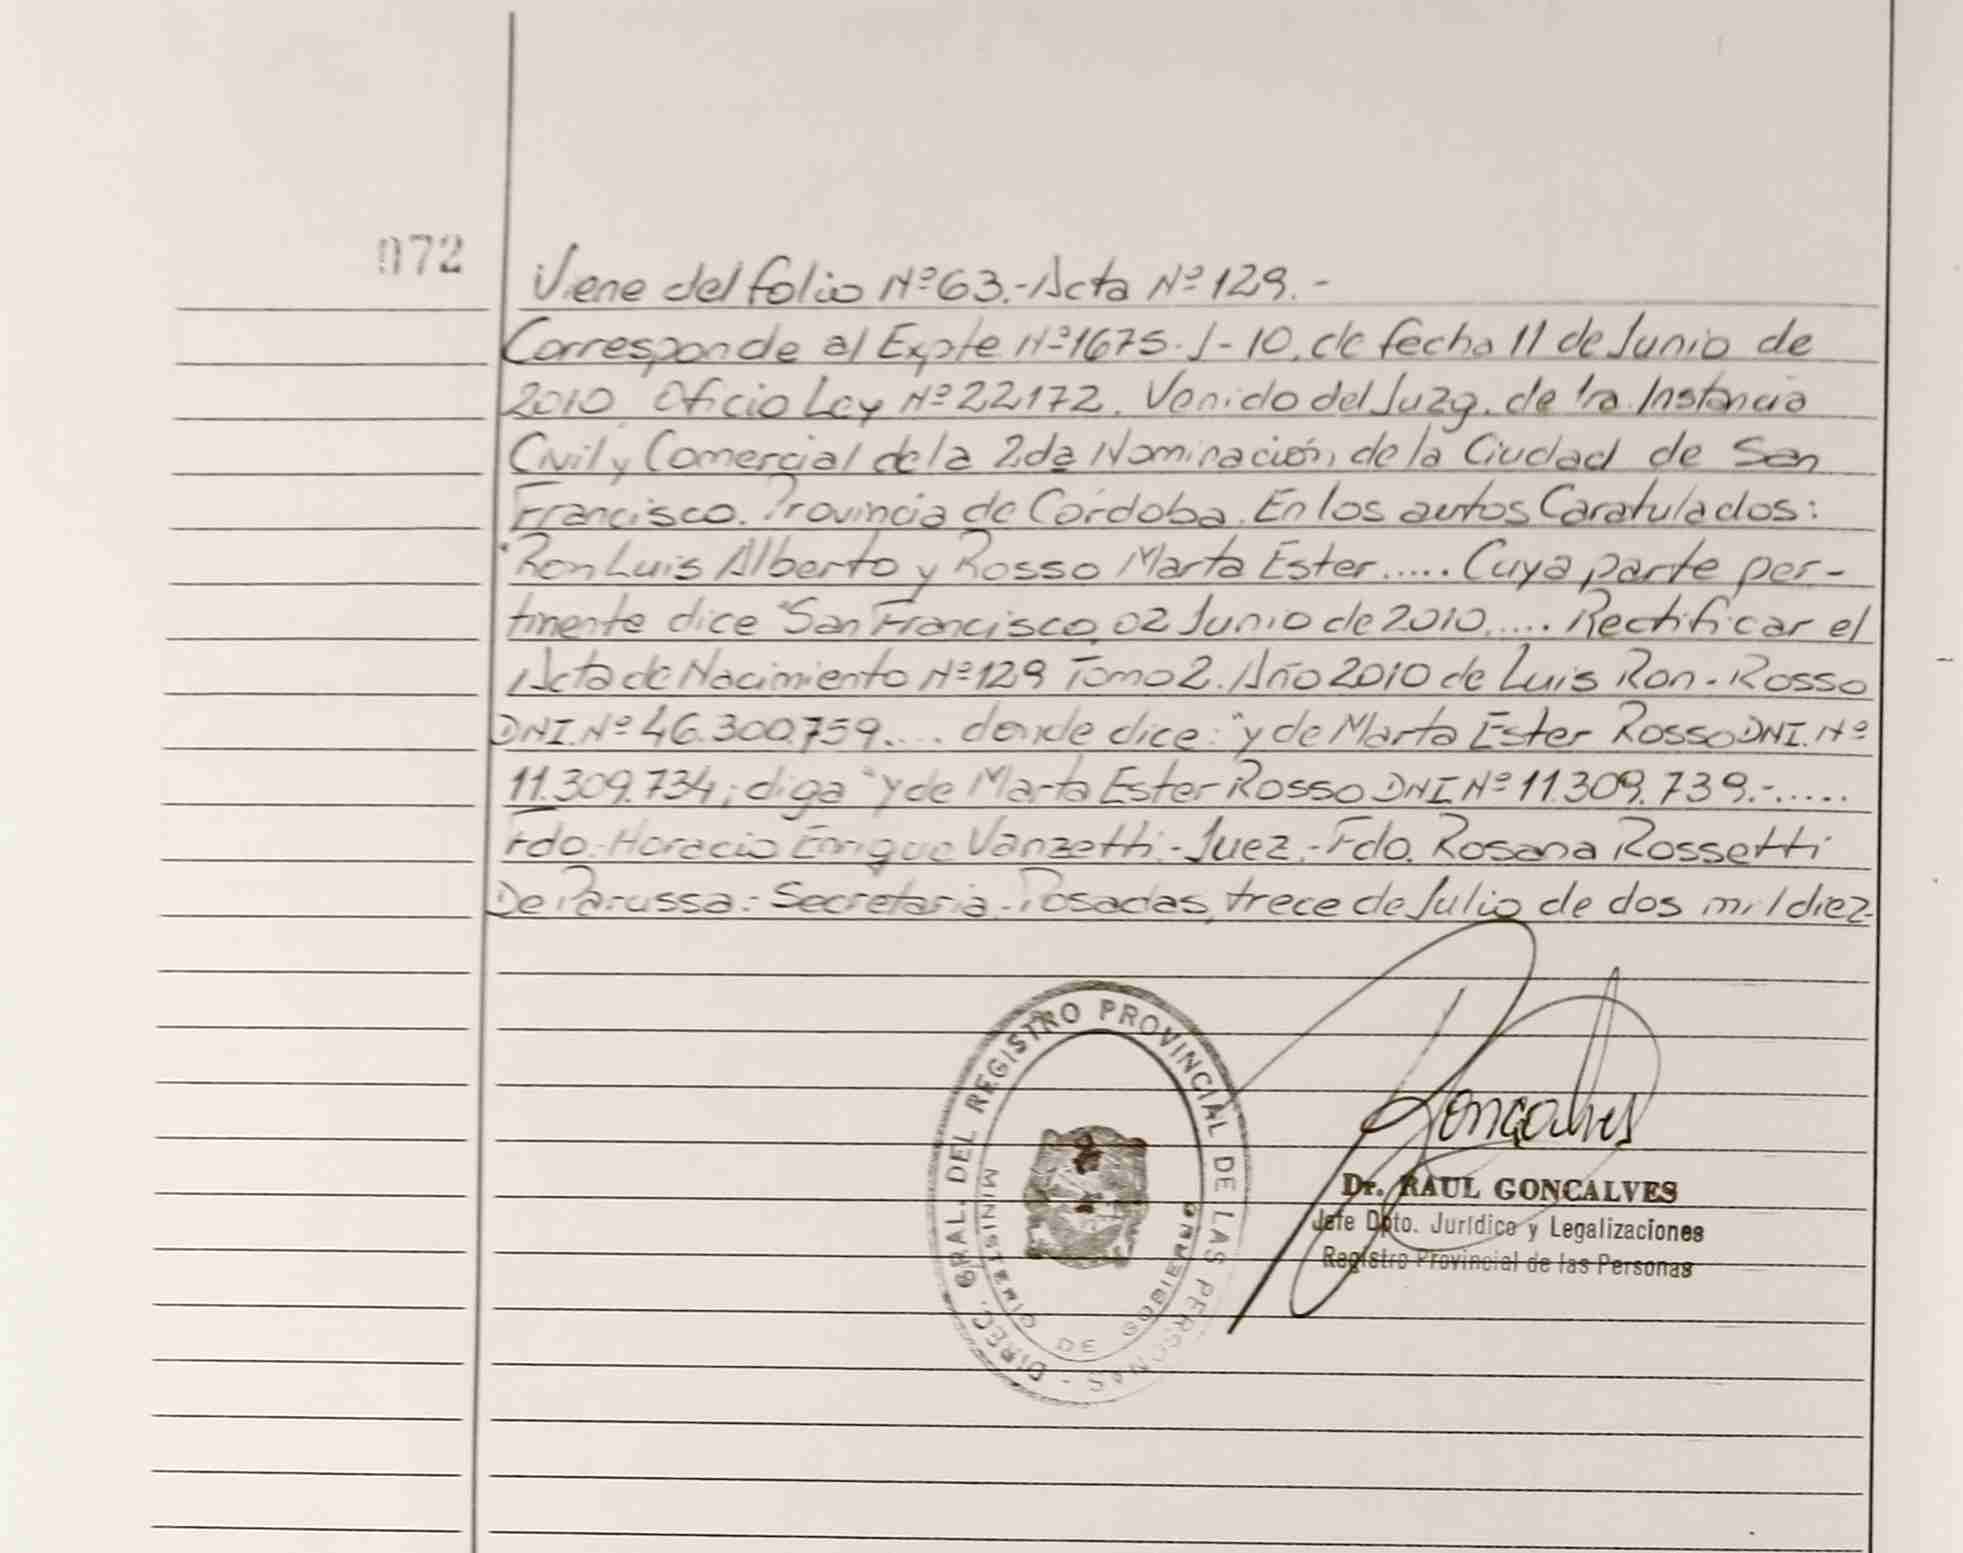 072
Viene del folio Nº 63.- Acta Nº 129.-
Corresponde al Expte Nº 1675-J-10, de fecha 11 de Junio de
2010. Oficio Ley Nº 22172. Venido del Juzg. de 1ra. Instancia
Civil y Comercial de la 2da Nominación, de la Ciudad de San
Francisco. Provincia de Córdoba. En los autos Caratulados:
"Ron Luis Alberto y Rosso Marta Ester..... Cuya parte per-
tinente dice "San Francisco, 02 Junio de 2010..... Rectificar el
Acta de Nacimiento Nº 129 Tomo 2. Año 2010 de Luis Ron-Rosso
DNI. Nº 46.300.759.... donde dice: "y de Marta Ester Rosso DNI. Nº
11.309.734; diga "y de Marta Ester Rosso DNI Nº 11.309.739.-.....
Fdo.- Horacio Enrique Vanzetti.- Juez.- Fdo. Rosana Rossetti
De Parussa.- Secretaria.- Posadas, trece de Julio de dos mil diez-
DIREC. GRAL. DEL REGISTRO PROVINCIAL DE LAS PERSONAS -
MINISTERIO DE GOBIERNO
Goncalves
Dr. RAUL GONCALVES
Jefe Dpto. Jurídico y Legalizaciones
Registro Provincial de las Personas